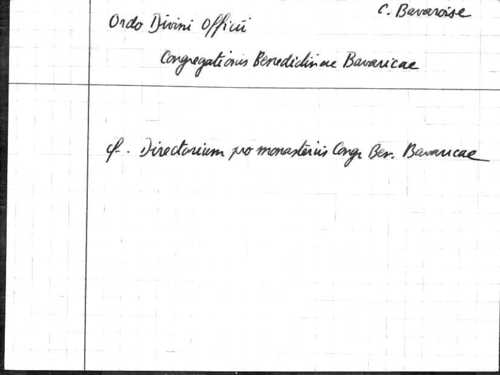 C. Bavaroise
Ordo Divini Officii
Congregationis Benedictinae Bavaricae
cf. Directorium pro monasteriis Congr. Ben. Bavaricae